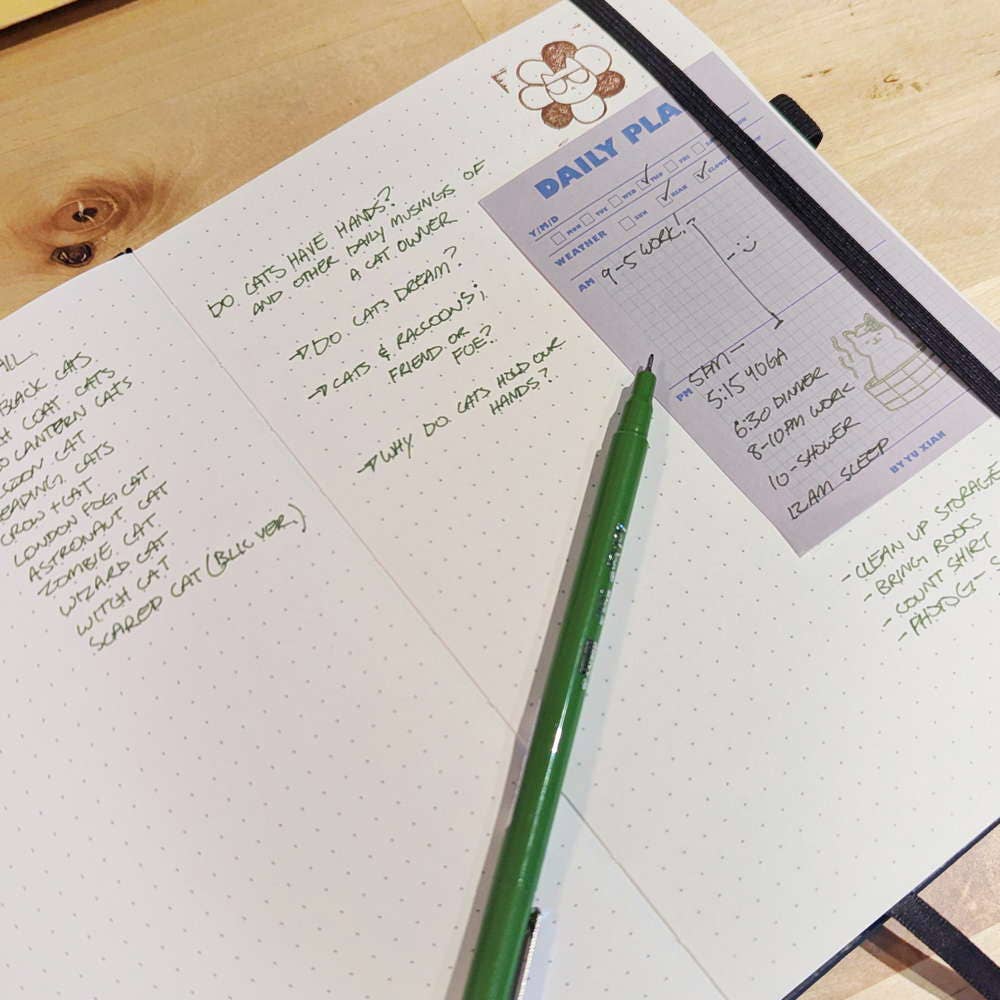 BLACK CATS
COAT CATS
LANTERN CATS
CAT
READING CATS
CROW + CAT
LONDON FOG CAT
ASTRONAUT CAT
ZOMBIE CAT
WIZARD CAT
WITCH CAT
SCARED CAT (BLK VER.)
DO CATS HAVE HANDS?
AND OTHER DAILY MUSINGS OF
A CAT OWNER
→ DO CATS DREAM?
→ CATS & RACCOONS;
FRIEND OR
FOE?
→ WHY DO CATS HOLD OUR
HANDS?
F
DAILY PLA
Y/M/D
MON TUE WED THU FRI
WEATHER SUN RAIN CLOUDY
AM 9-5 WORK!
PM 5PM -
5:15 YOGA
6:30 DINNER
8-10PM WORK
10-SHOWER
12AM SLEEP
BY YU XIAN
- CLEAN UP STORAGE
- BRING BOOKS
- COUNT SHIRT